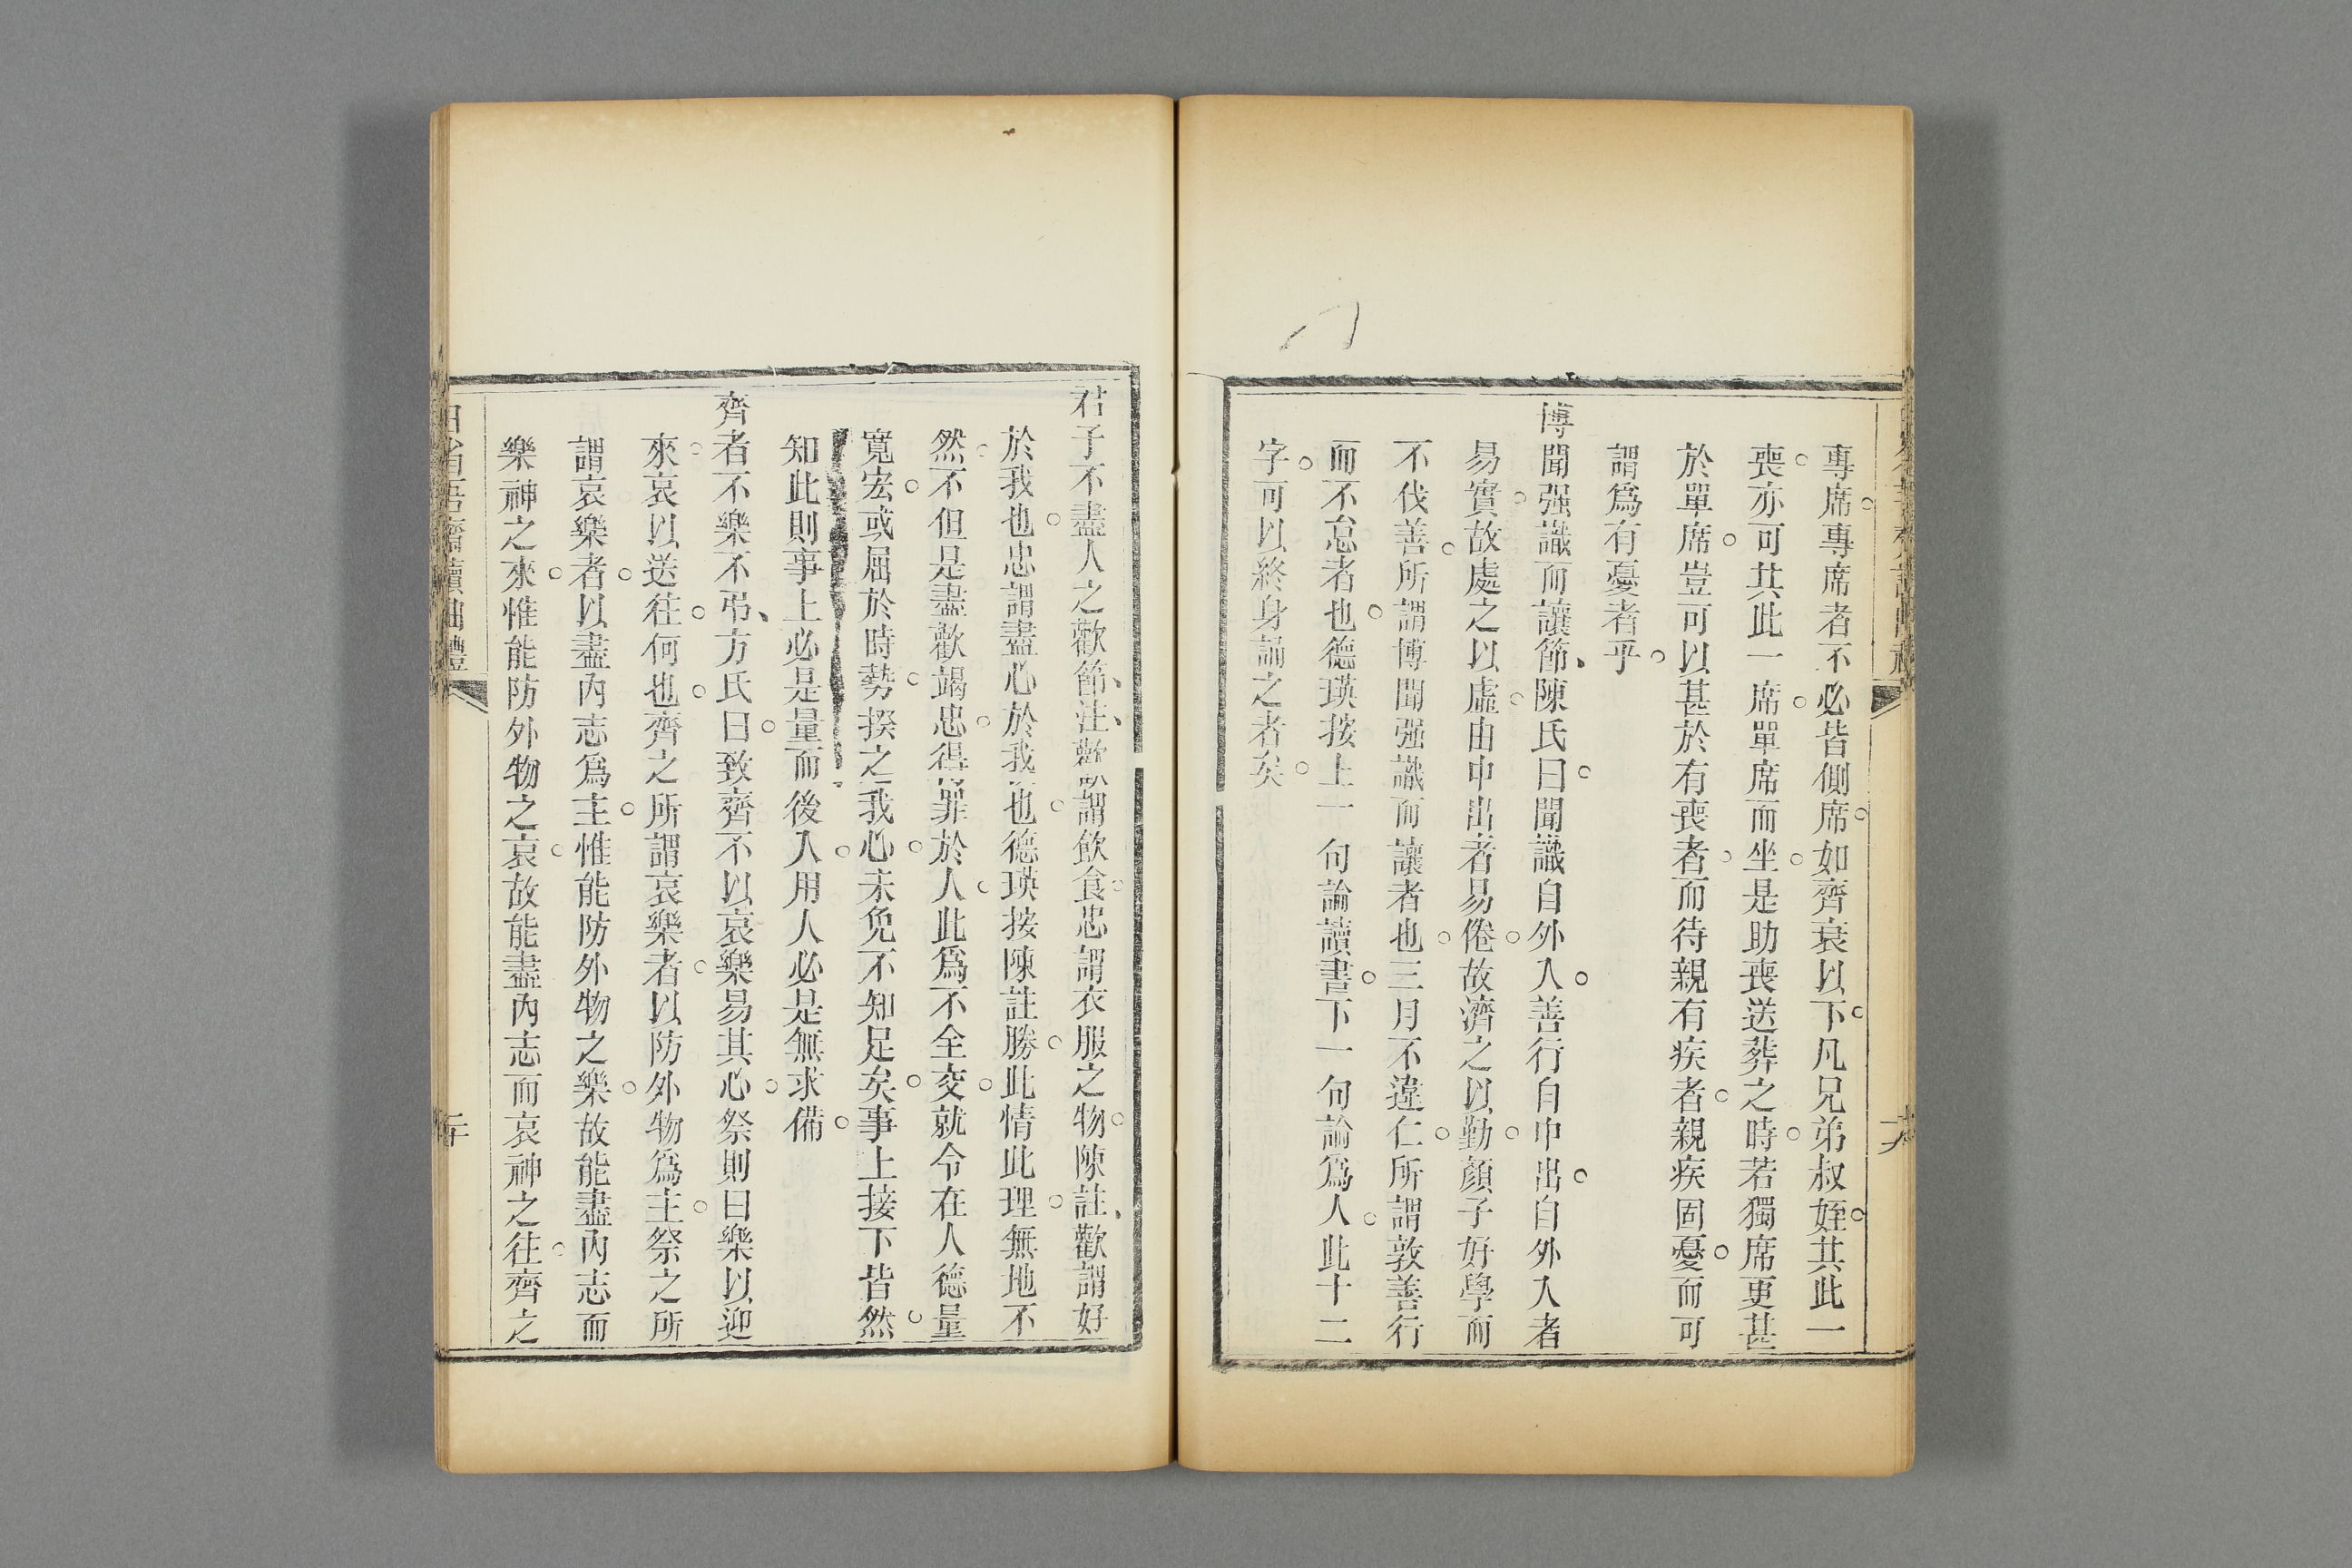 專席專席者不必皆側席如齊衰以下凡兄弟叔姪共此一
喪亦可共此一席單席而坐是助喪送葬之時若獨席更甚
於單席豈可以甚於有喪者而待親有疾者親疾固憂而可
謂爲有憂者乎
博聞强識而讓節陳氏曰聞識自外入善行自中出自外入者
易實故處之以虛由中出者易倦故濟之以勤顏子好學而
不伐善所謂博聞强識而讓者也三月不違仁所謂敦善行
而不怠者也德瑛按上一句論讀書下一句論爲人此十二
字可以終身誦之者矣
君子不盡人之歡節注歡謂飲食忠謂衣服之物陳註歡謂好
於我也忠謂盡心於我也德瑛按陳註勝此情此理無地不
然不但是盡歡竭忠得罪於人此爲不全交就令在人德量
寬宏或屈於時勢揆之我心未免不知足矣事上接下皆然
知此則事上必是量而後入用人必是無求備
齊者不樂不弔方氏曰致齊不以哀樂易其心祭則曰樂以迎
來哀以送往何也齊之所謂哀樂者以防外物爲主祭之所
謂哀樂者以盡內志爲主惟能防外物之樂故能盡內志而
樂神之來惟能防外物之哀故能盡內志而哀神之往齊之
日省吾齋讀曲禮